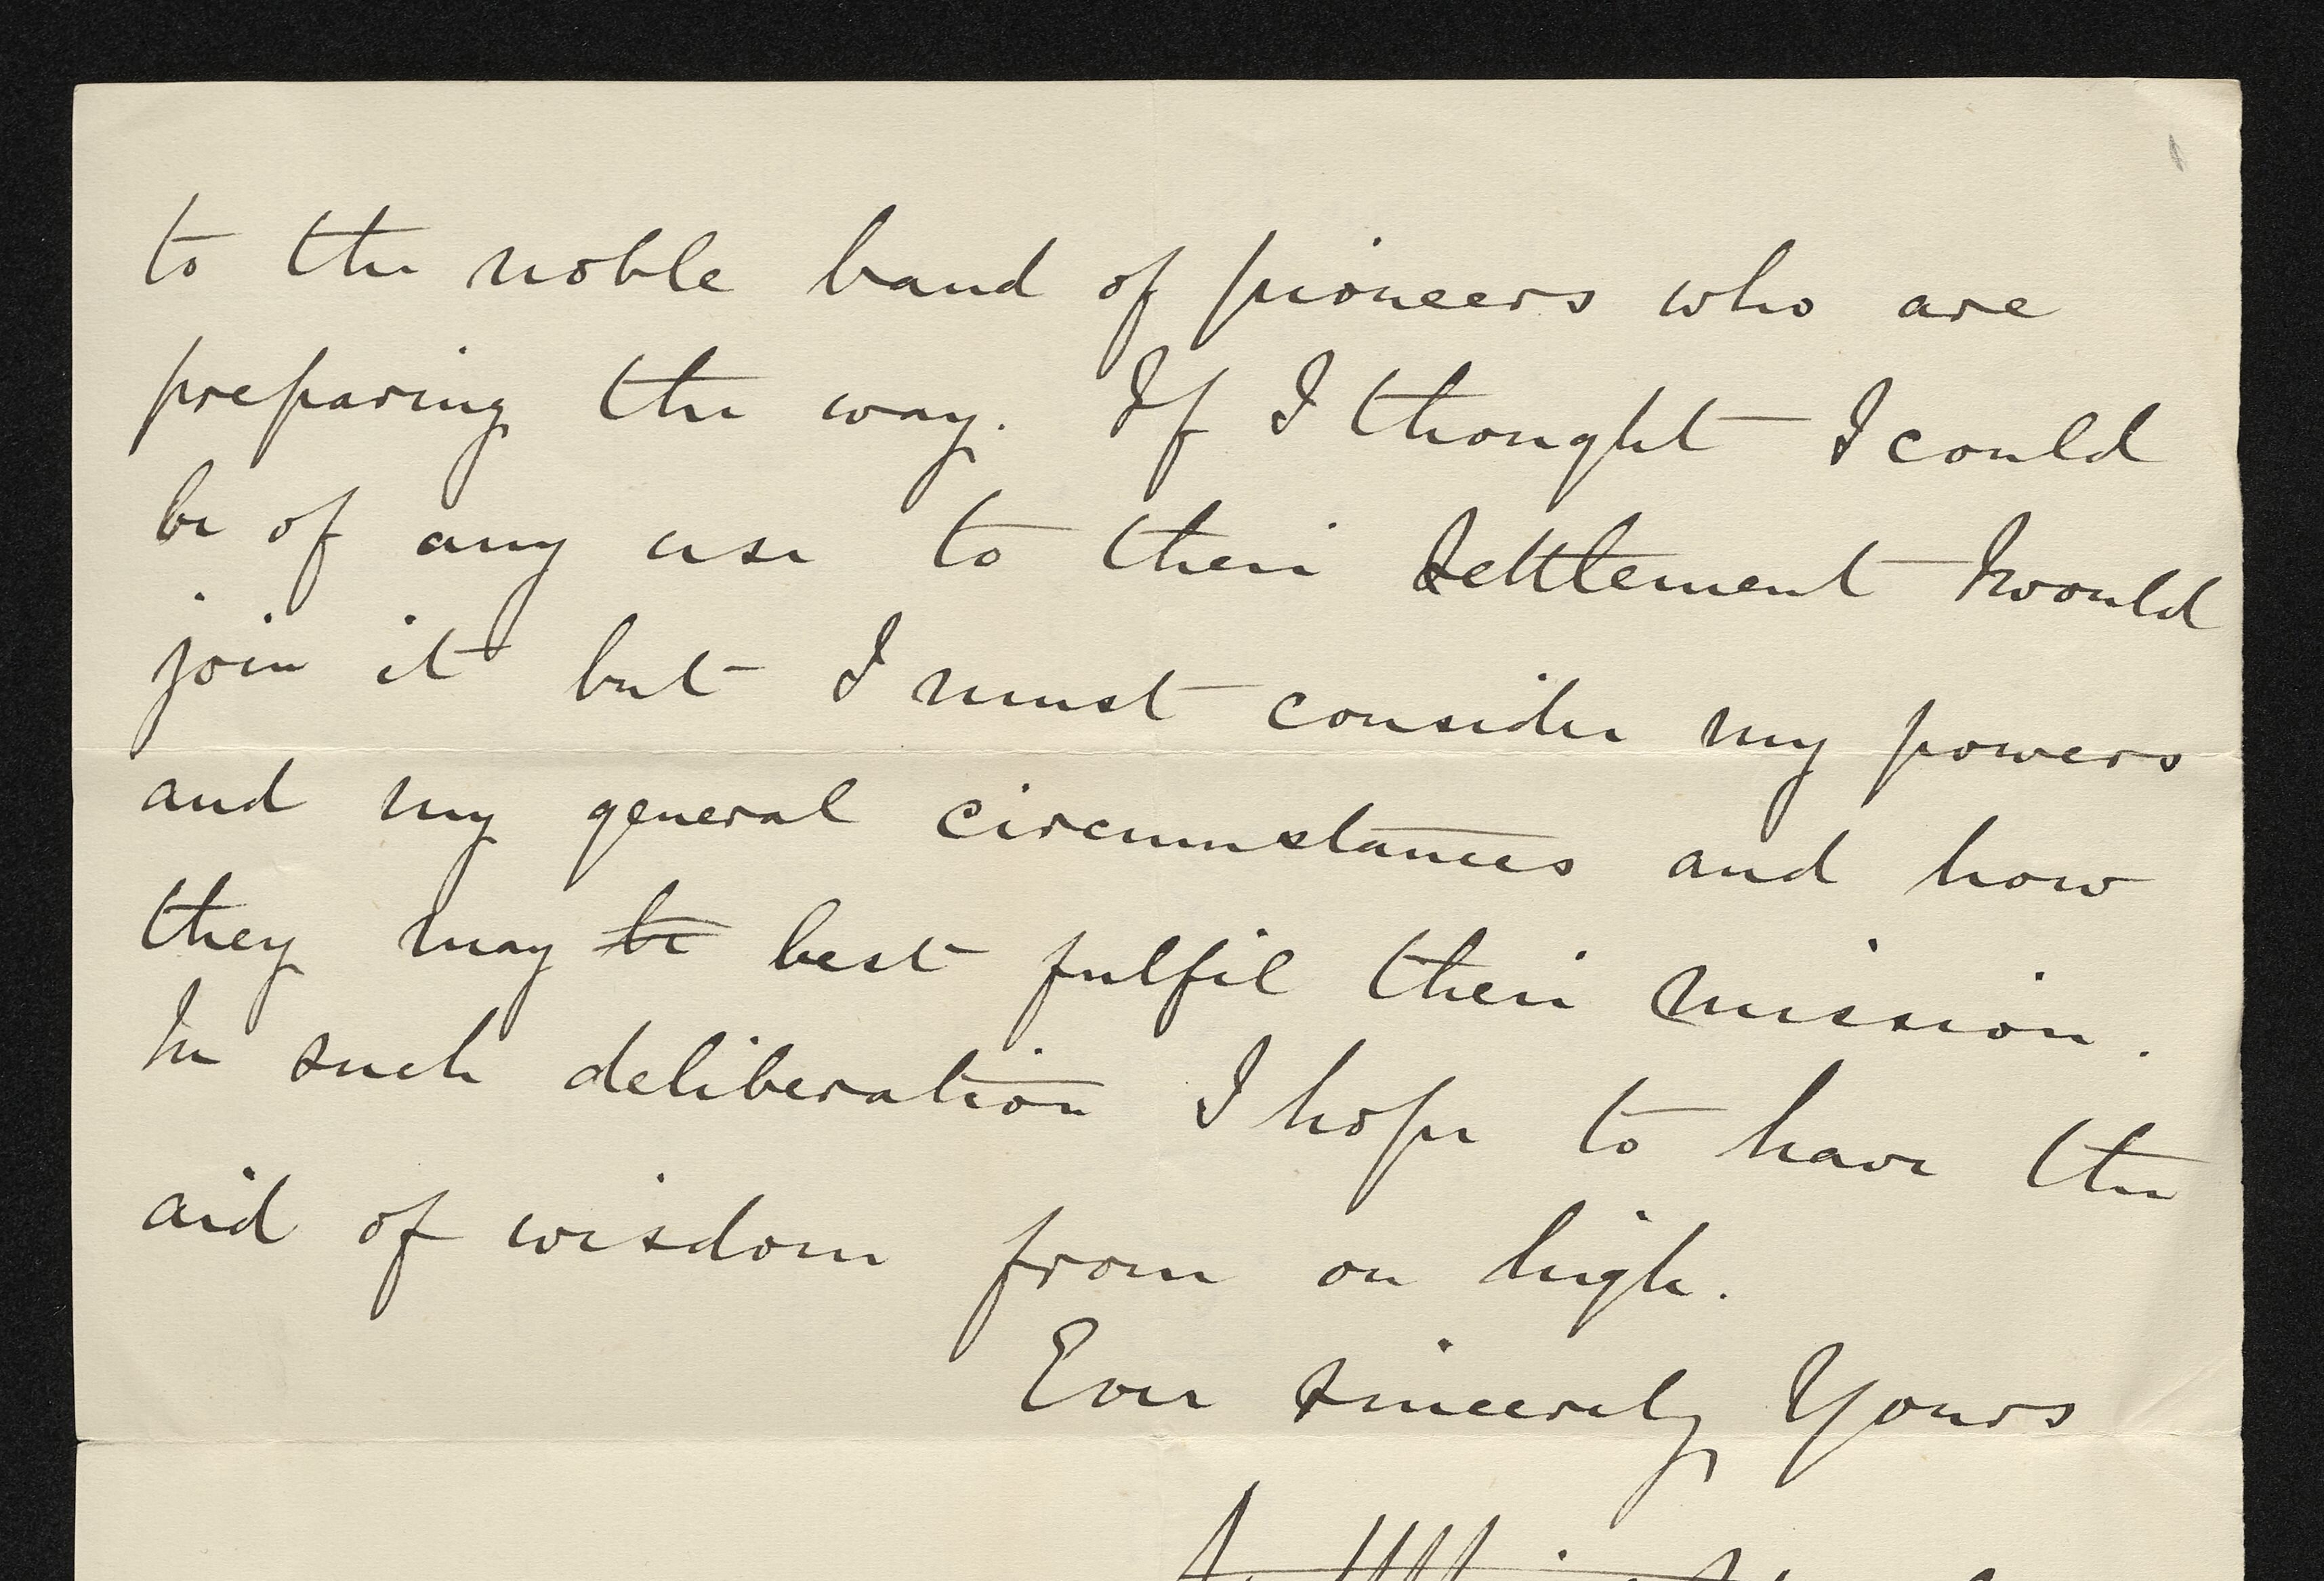 to the noble band of pioneers who are
preparing the way. If I thought I could
be of any use to their Settlement I would
join it but I must consider my powers
and my general circumstances and how
they may be best fulfil their mission.
In such deliberation I hope to have the
aid of wisdom from on high.
Ever sincerely Yours